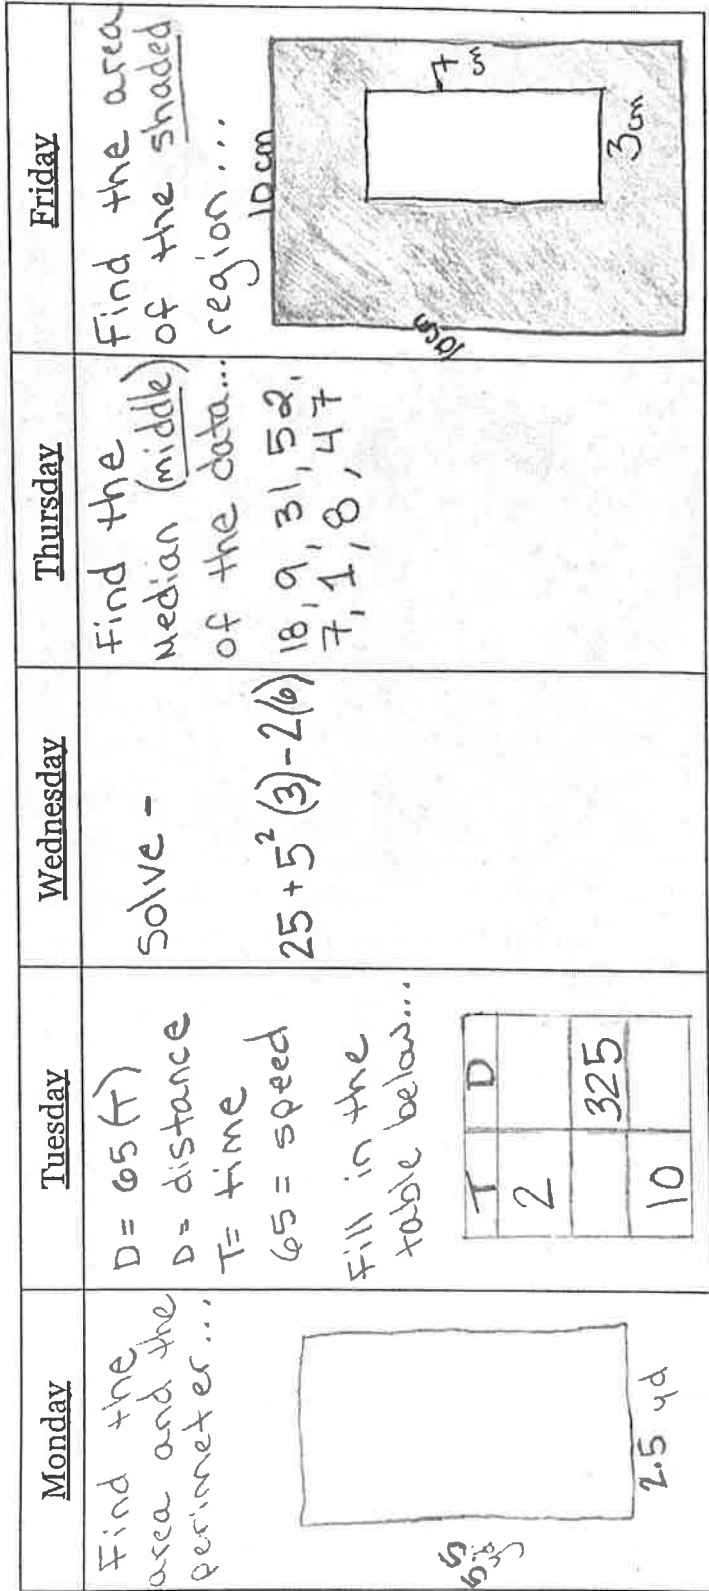 Monday
Find the
area and the
perimeter...
2.5 yd
Tuesday
D = 65(T)
D = distance
T = time
65 = speed
Fill in the
table below...
T D
2
325
10
Wednesday
Solve -
25 + 5² (3) - 2(6)
Thursday
Find the
Median (middle)
of the data...
18, 9, 31, 52,
7, 1, 8, 47
Friday
Find the area
of the shaded
region...
10 cm
10cm
7 cm
3cm